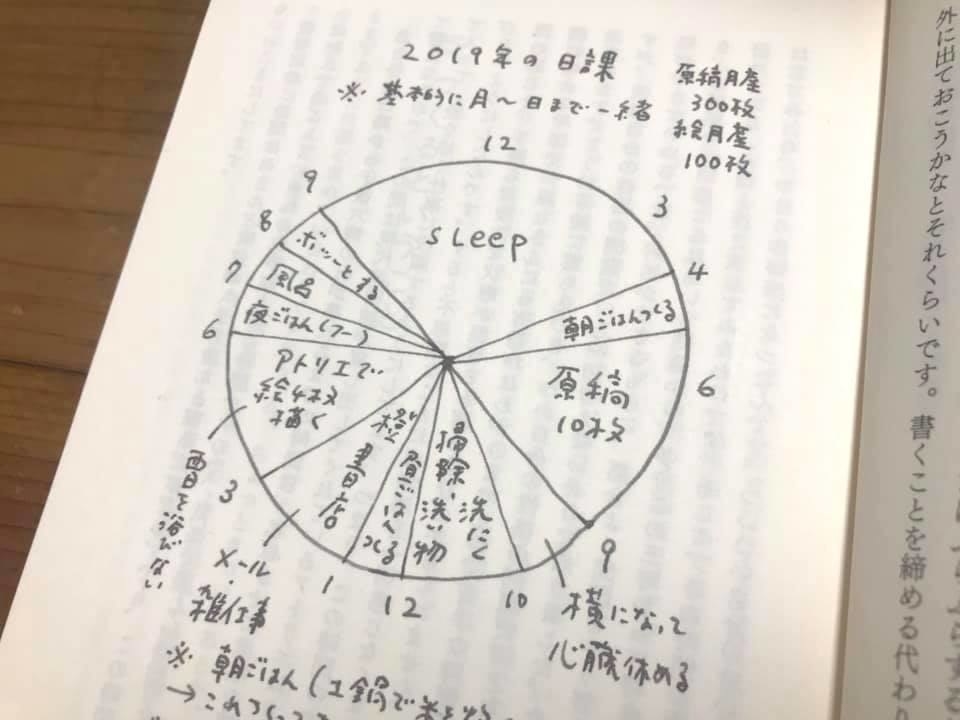 2019年の日課
※ 基本的に月〜日まで一緒
原稿月産
300枚
絵月産
100枚
12
3
4
6
9
10
12
1
3
6
7
8
9
sLeep
朝ごはんつくる
原稿
10枚
横になって
心臓休める
洗たく
掃除、洗い物
昼ごはんつくる
橙書店
メール・雑仕事
アトリエで
絵4枚
描く
西日を浴びない
夜ごはん(フー)
風呂
ボッーとする
※ 朝ごはん(土鍋で米を
→これつくって
外に出ておこうかなとそれくらいです。書くことを締める代わり